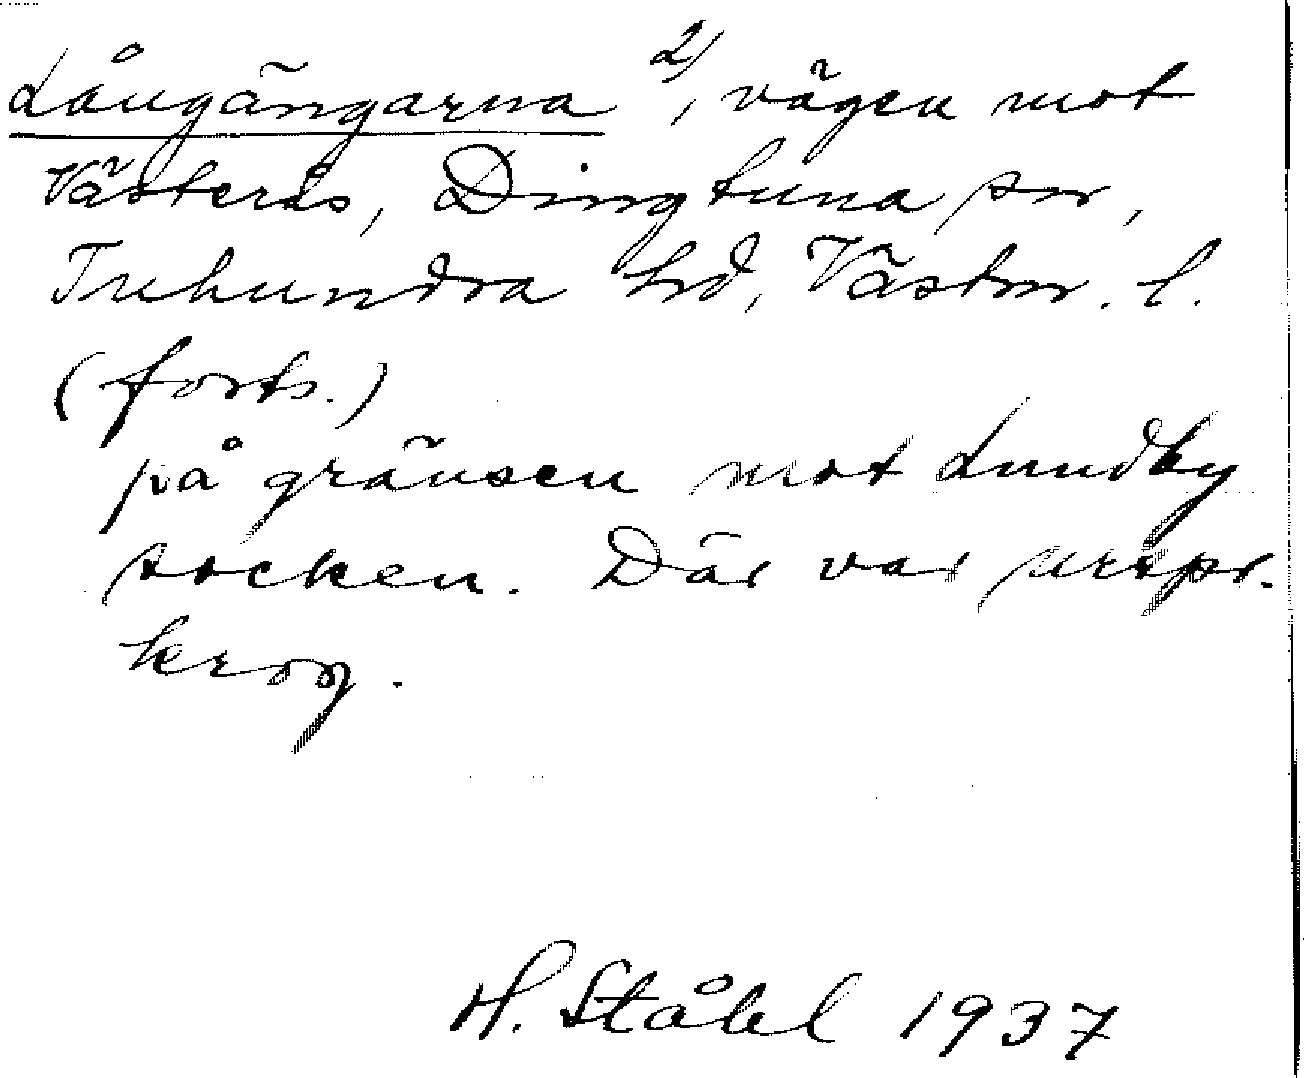 Långängarna 2), vägen mot
Västerås, Dingtuna sn,
Tuhundra hd, Västm. l.
(forts.)
på gränsen mot Lundby
socken. Där var urspr.
krog.
H. Ståhl 1937